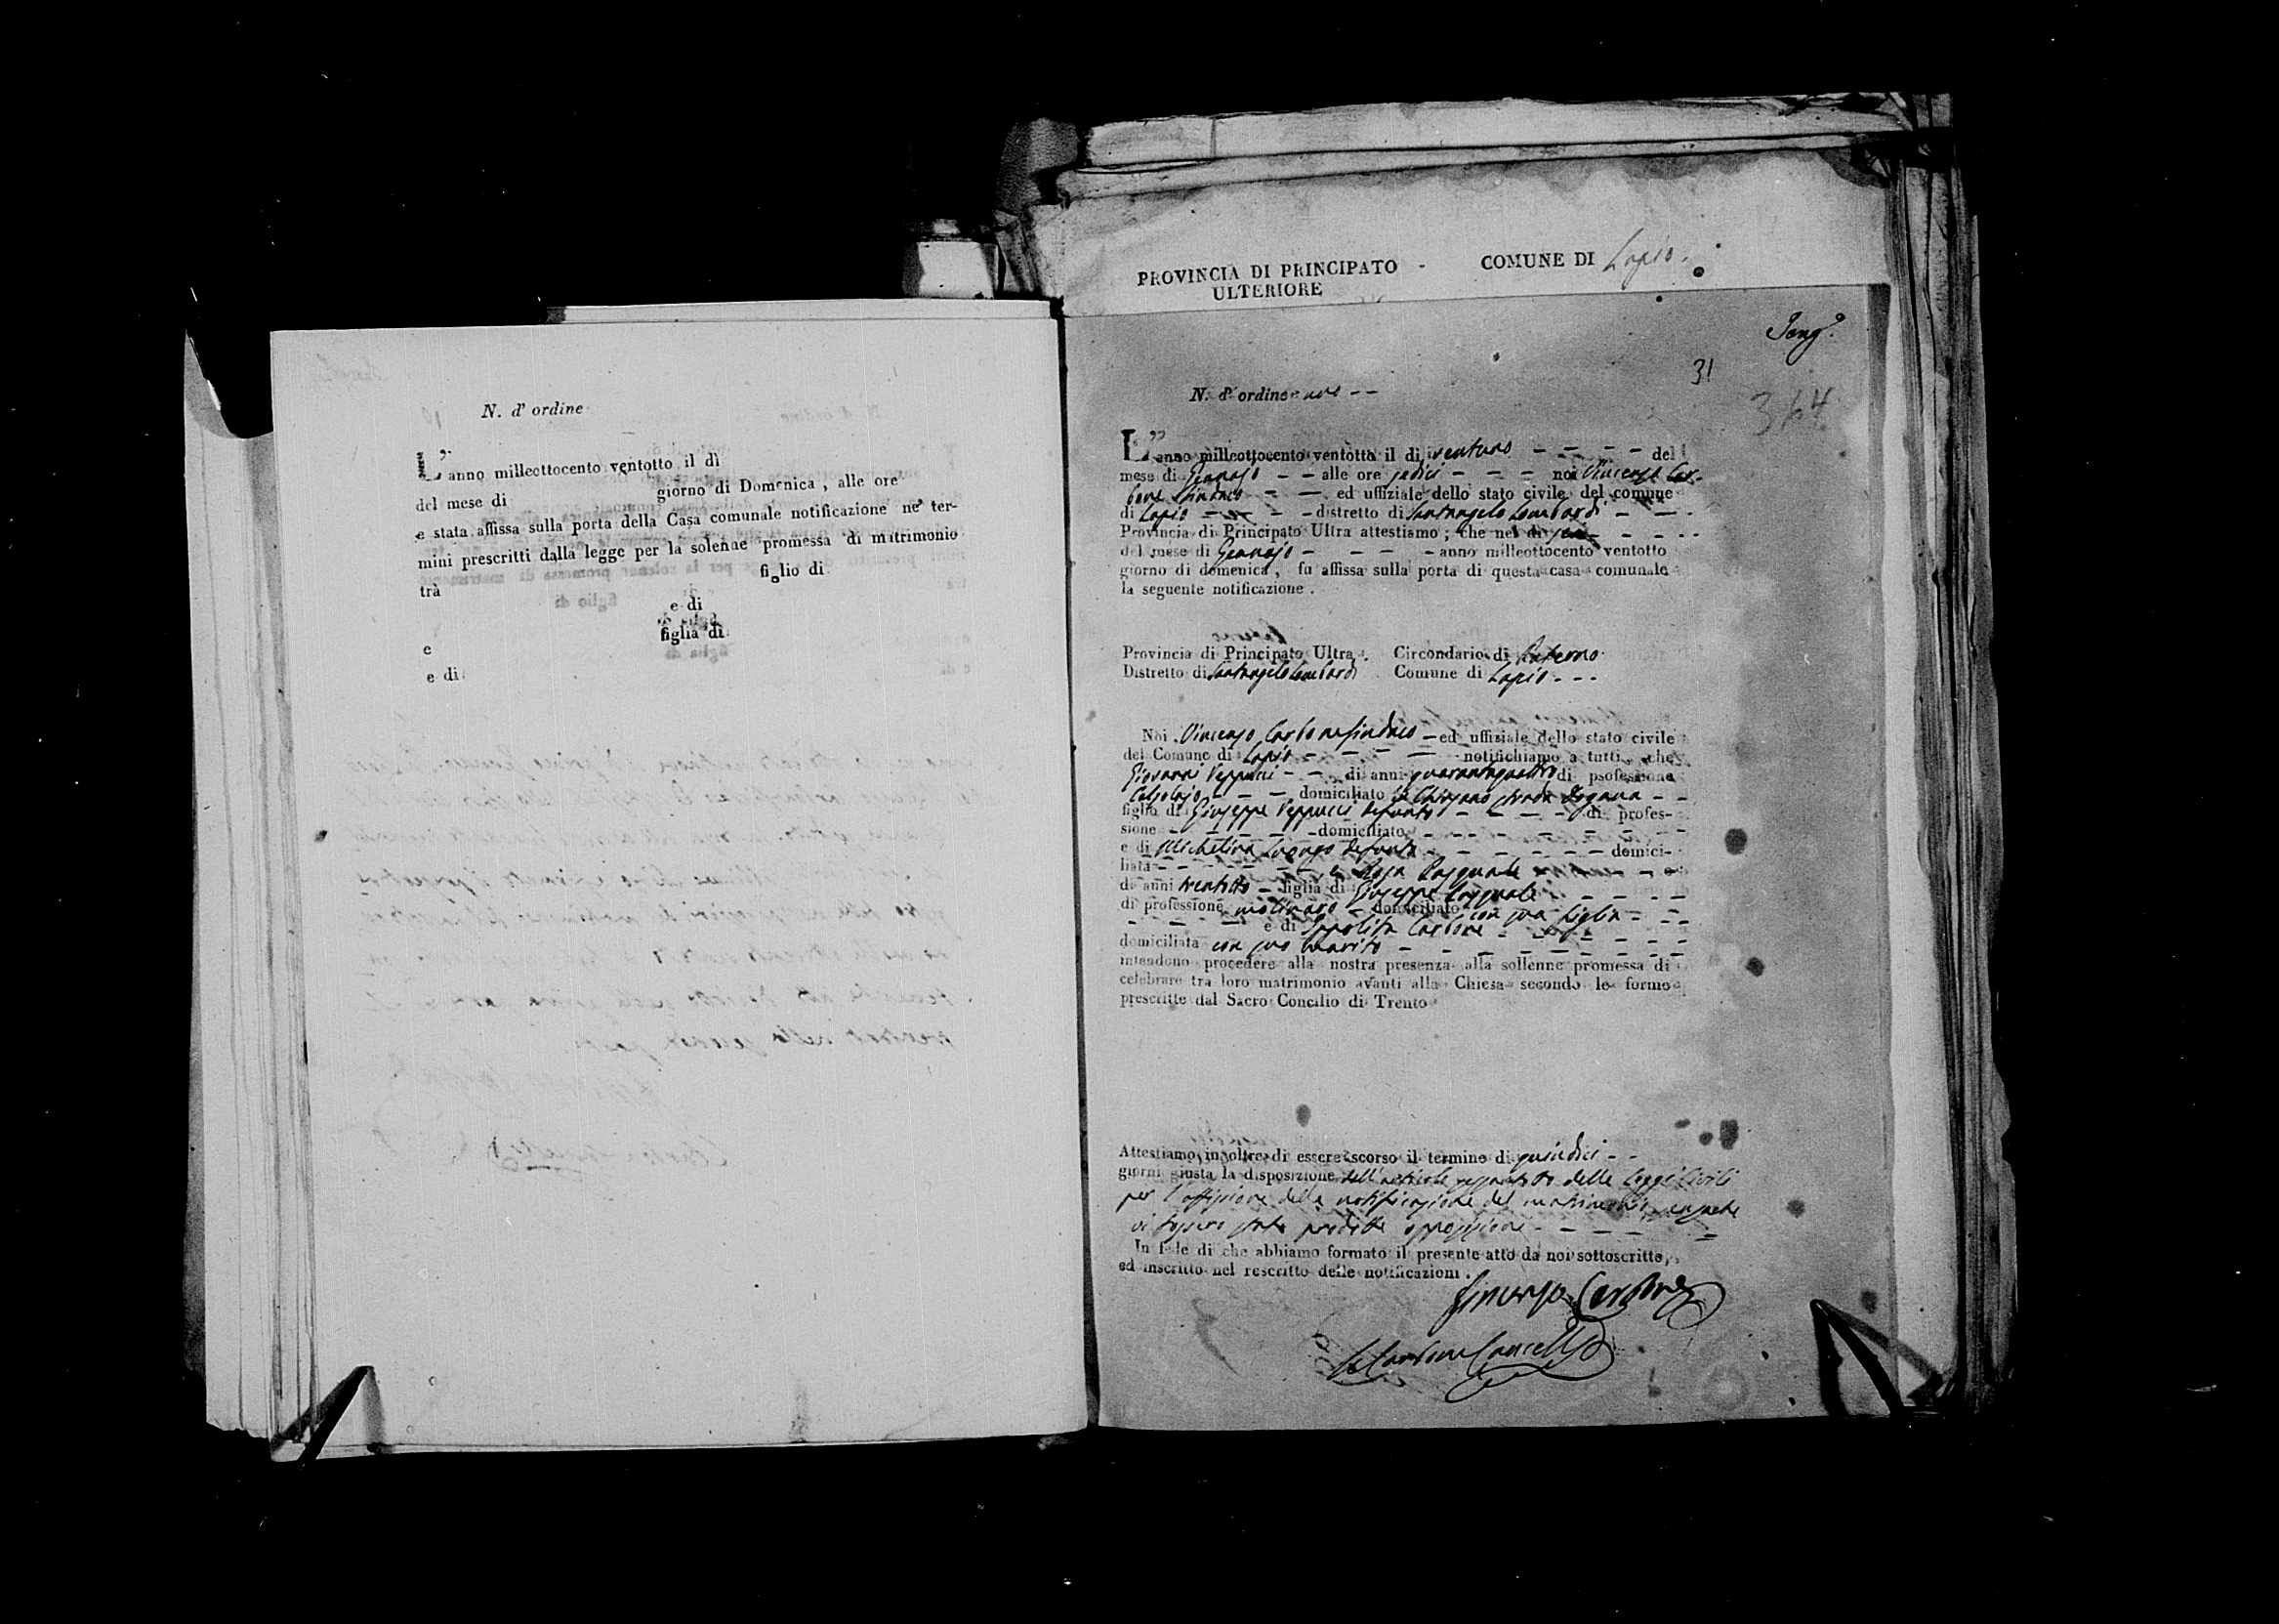 N. d' ordine
L' anno milleottocento ventotto il dì
del mese di giorno di Domenica , alle ore
e stata affissa sulla porta della Casa comunale notificazione ne' ter-
mini prescritti dalla legge per la solenne promessa di matrimonio
trà figlio di
e di
e figlia di
e di
PROVINCIA DI PRINCIPATO COMUNE DI Lapio.
ULTERIORE
31
364
N. d' ordine uno
L' anno milleottocento ventotto il dì ventuno del
mese di Gennajo alle ore sedici noi Vincenzo Car-
bone Sindaco ed uffiziale dello stato civile del comune
di Lapio distretto di Santangelo Lombardi
Provincia di Principato Ultra attestiamo ; che nel dì sei
del mese di Gennajo anno milleottocento ventotto
giorno di domenica , fu affissa sulla porta di questa casa comunale
la seguente notificazione .
Provincia di Principato Ultra . Circondario di Paterno
Distretto di Santangelo Lombardi Comune di Lapio
Noi Vincenzo Carbone Sindaco ed uffiziale dello stato civile
del Comune di Lapio notifichiamo a tutti , che
Giovanni Veppucci di anni quarantaquattro di professione
Calzolajo domiciliato strada Dogana
figlio di Giuseppe Veppucci defunto di profes-
sione domiciliato
e di Michelina Luongo defunta domici-
liata e Rosa Pasquale
di anni trentotto figlia di Giuseppe Pasquale
di professione molinaro domiciliato con sua figlia
e di Ippolita Carbone
domiciliata con suo marito
intendono procedere alla nostra presenza alla sollenne promessa di
celebrare tra loro matrimonio avanti alla Chiesa secondo le forme
prescritte dal Sacro Concilio di Trento
Attestiamo inoltre di essere scorso il termine di quindici
giorni giusta la disposizione dell' articolo delle Leggi Civili
per l' affissione della notificazione del matrimonio senzache
vi fossero state prodotte opposizioni
In fede di che abbiamo formato il presente atto da noi sottoscritto ,
ed inscritto nel rescritto delle notificazioni .
Vincenzo Carbone
Carbone Cancell